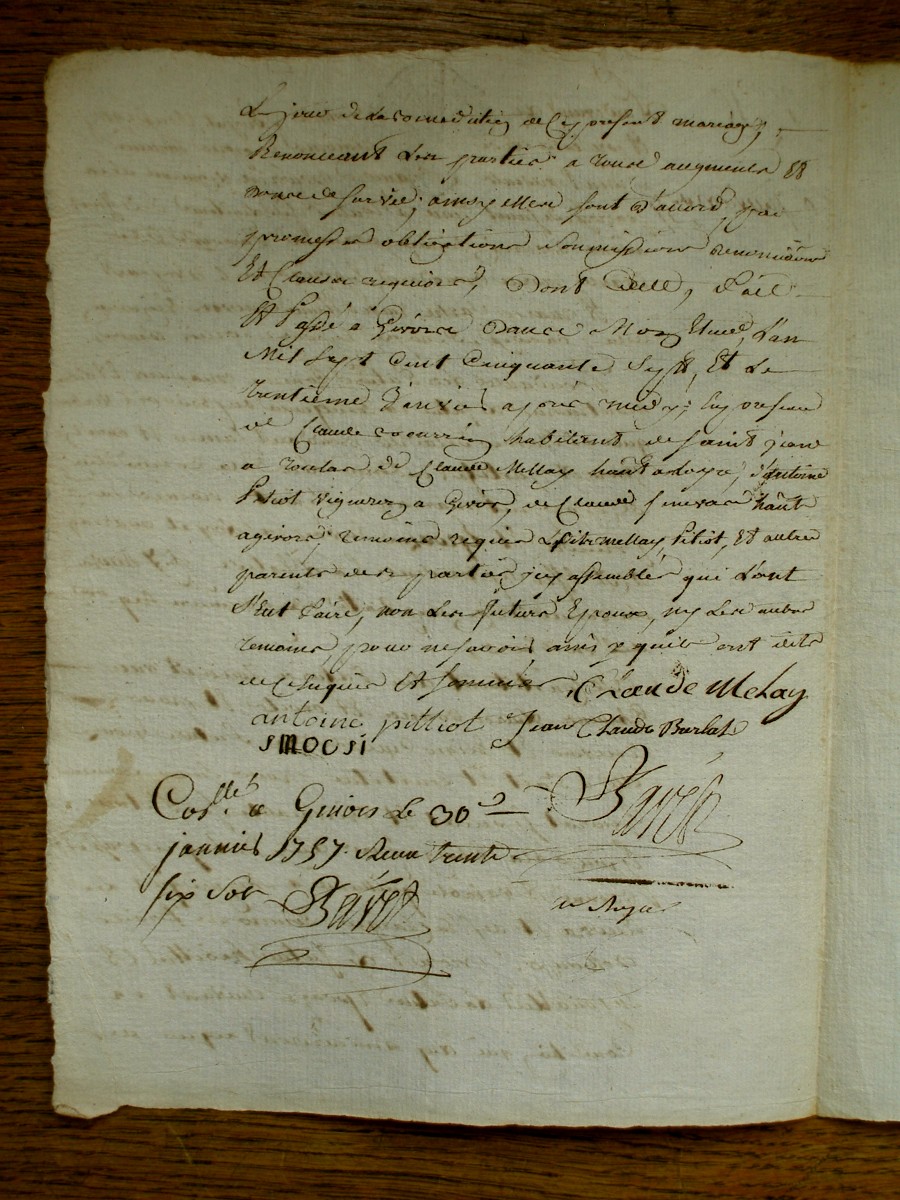 Le jour de la benediction de Ce present mariage,
Renonceant Les parties a tous augments Et
de survie, ainsy Elles sont d'accord, par
promesses obligations soumissions renonciaons
Et Clauses requises, Dont acte, fait
Et Passé a Givors Dans Mon Etude, L'an
Mil Sept Cent Cinquante Sept, Et Le
trentieme Janvier apres midy, En presence
de Claude habitant de saint jean
a de Claude Mellay hânt a Loyre, d'Antoine
Pitiot vigneron a Givors, de Claude hânt
a givors, temoins requis Mellay Pitiot, Et autres
parents des parties icy assemblés qui L'ont
sceut faire, non Les futurs Epoux, ny Les autres
temoins pour ne savoir ainsy qu'ils ont dits
de Ce Enquis Et sommés, Claude Melay
antoine pitiot Jean Claude Burlat
SMOOSI
Coll.llé a Givors Le 30e
janvier 1757. Receu trente
six sols